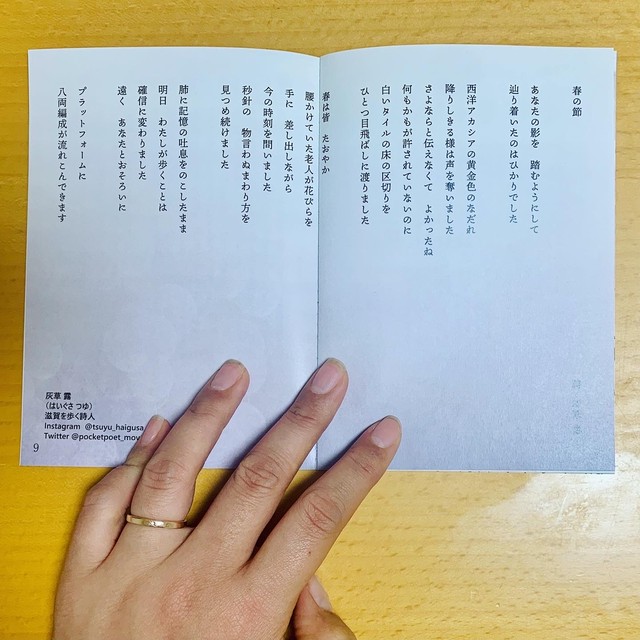 春の節
あなたの影を　踏むようにして
辿り着いたのはひかりでした
西洋アカシアの黄金色のなだれ
降りしきる様は声を奪いました
さよならと伝えなくて　よかったね
何もかもが許されていないのに
白いタイルの床の区切りを
ひとつ目飛ばしに渡りました
春は皆　たおやか
腰かけていた老人が花びらを
手に　差し出しながら
今の時刻を問いました
秒針の　物言わぬまわり方を
見つめ続けました
肺に記憶の吐息をのこしたまま
明日　わたしが歩くことは
確信に変わりました
遠く　あなたとおそろいに
プラットフォームに
八両編成が流れこんできます
灰草 霧
（はいぐさ つゆ）
滋賀を歩く詩人
Instagram @tsuyu_haigusa
Twitter @pocketpoet_mov
9